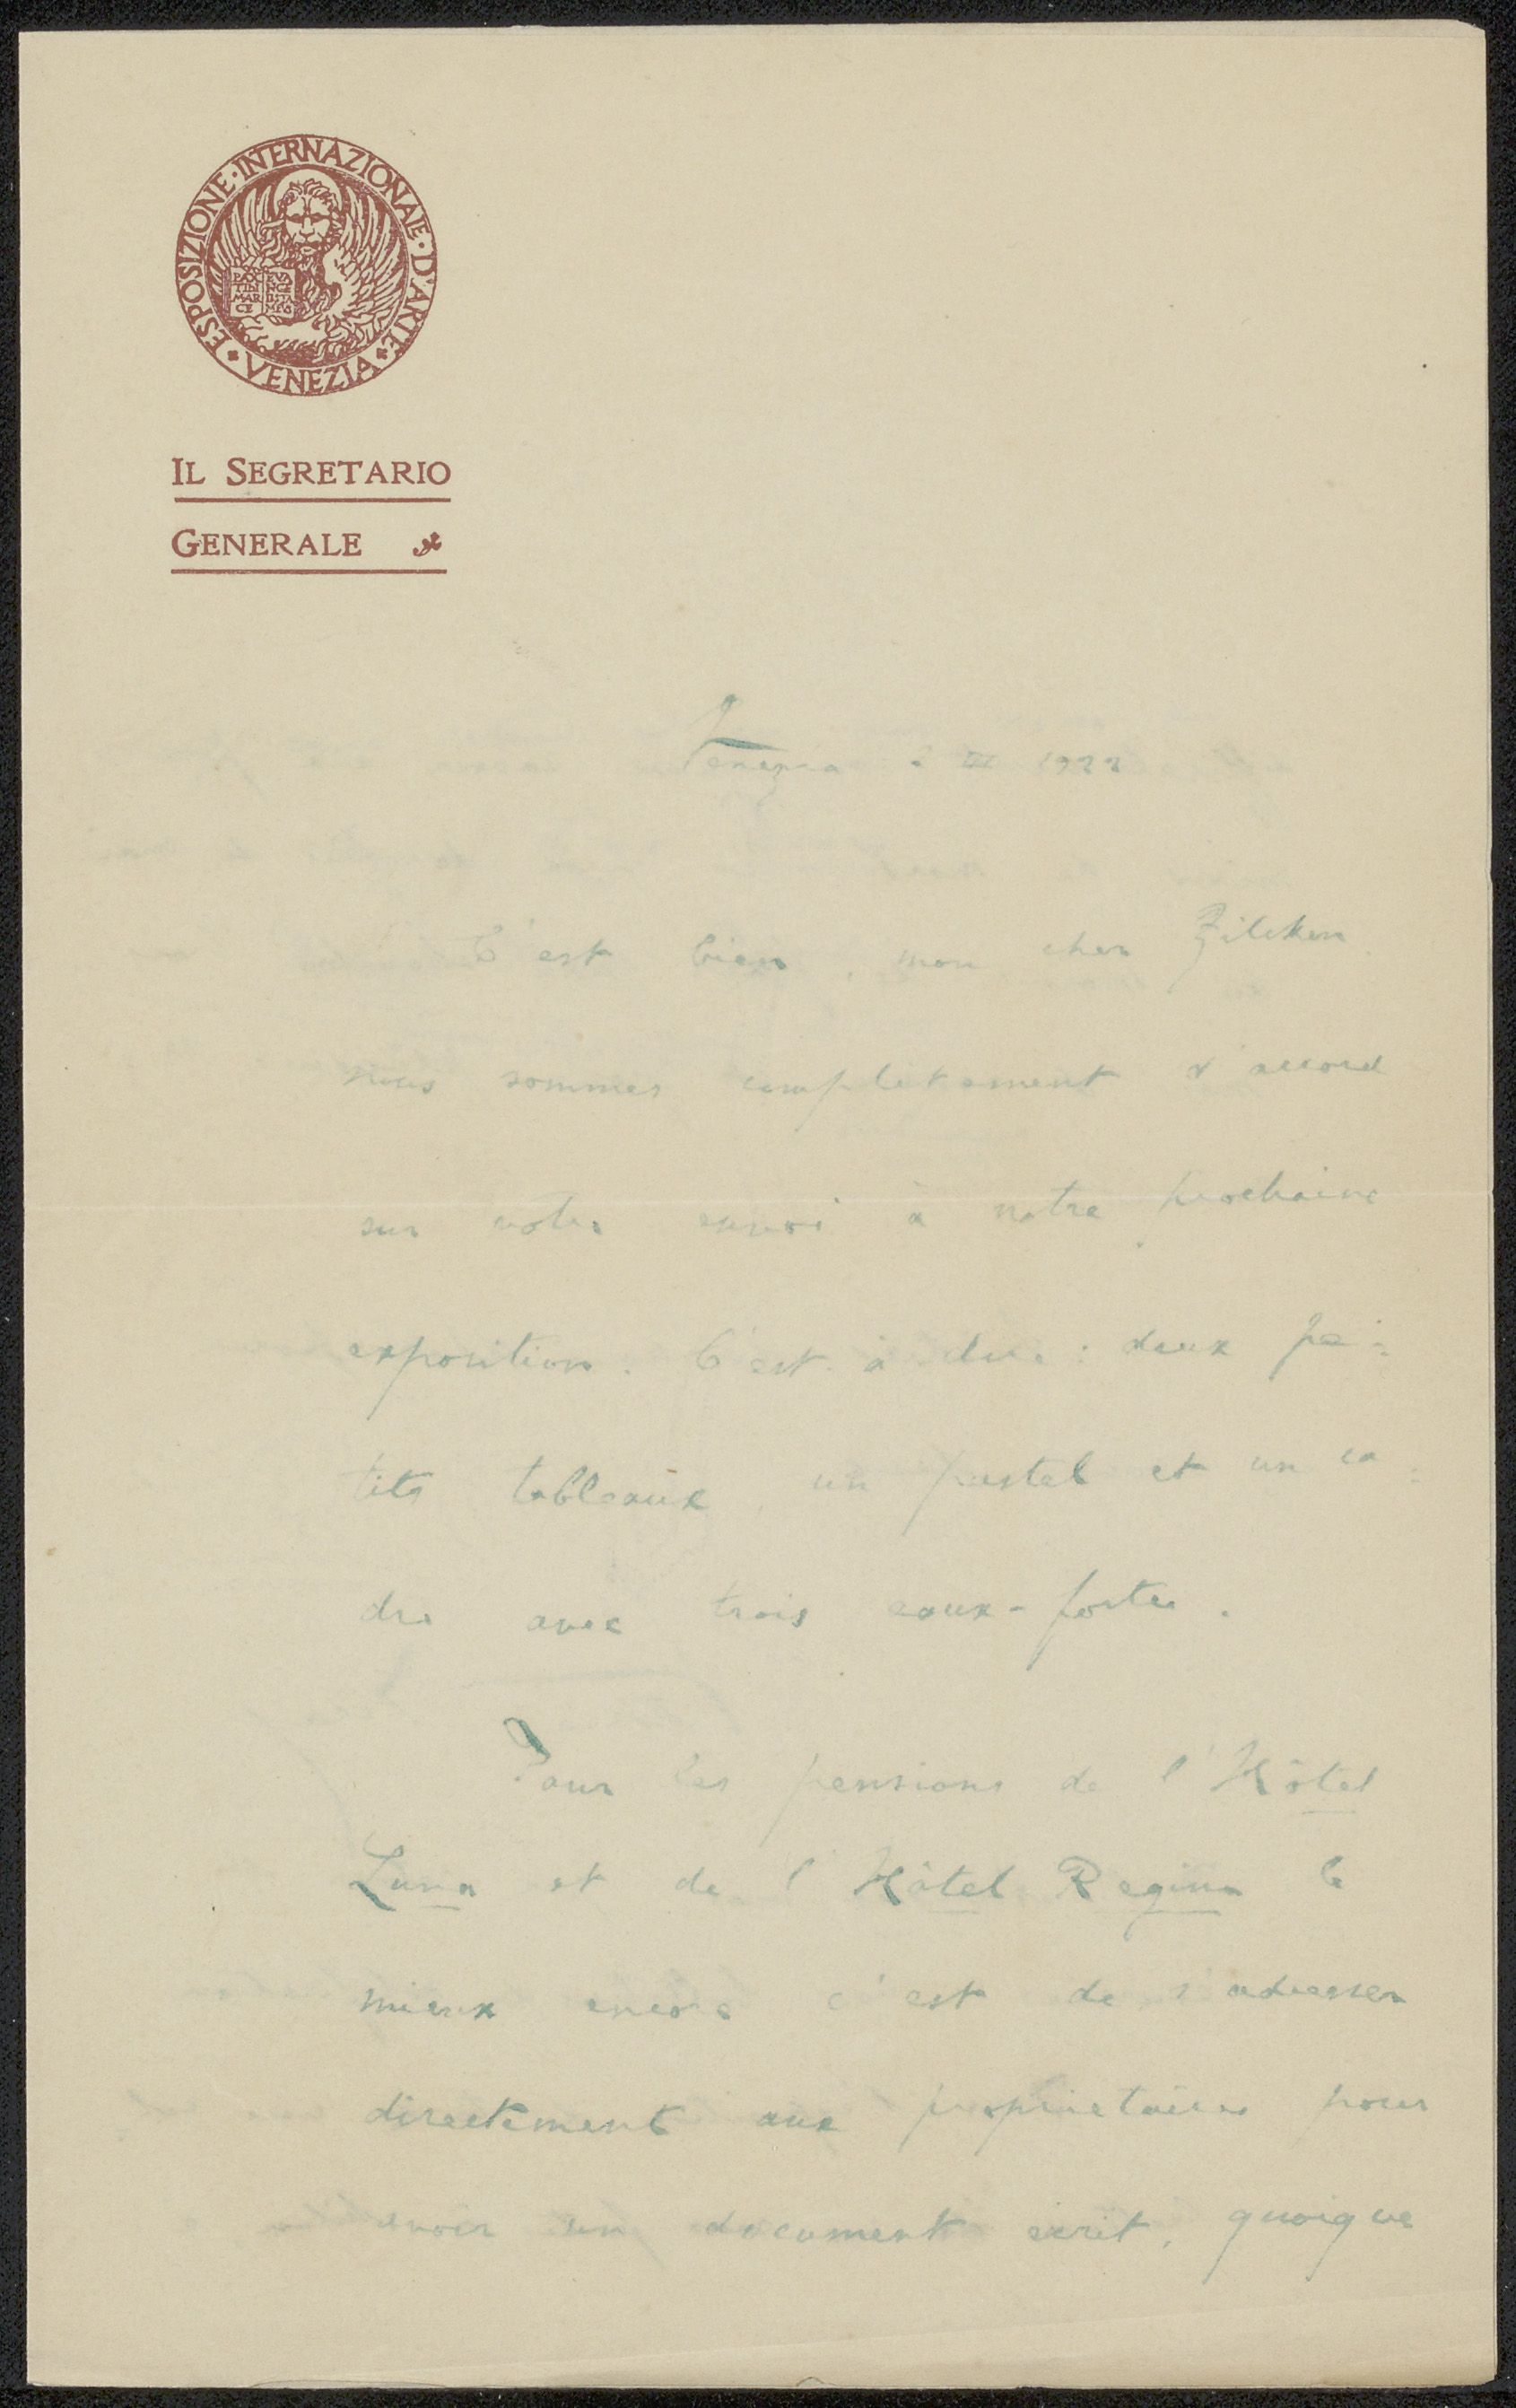 ESPOSIZIONE · INTERNAZIONALE · D'ARTE
VENEZIA
PAX EVA
TIBI NGE
MAR LISTA
CE MEVS
IL SEGRETARIO
GENERALE
Venezia 2 III 1922
C'est bien, mon cher Zilcken
nous sommes complètement d'accord
sur votre envoi à notre prochaine
exposition. C'est à dire: deux pe=
tits tableaux, un pastel et un ca=
dre avec trois eaux-fortes.
Pour les pensions de l'Hôtel
Luna et de l'Hôtel Regina le
mieux encore c'est de s'adresser
directement aux proprietaires pour
avoir un document ecrit, quoique